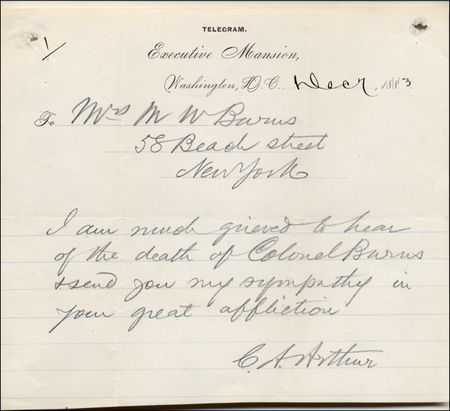 1/
TELEGRAM.
Executive Mansion,
Washington, D.C. Dec 7, 1883
To Mrs M W Burns
58 Beach street
New York
I am much grieved to hear
of the death of Colonel Burns
+ send you my sympathy in
your great affliction
C. A. Arthur